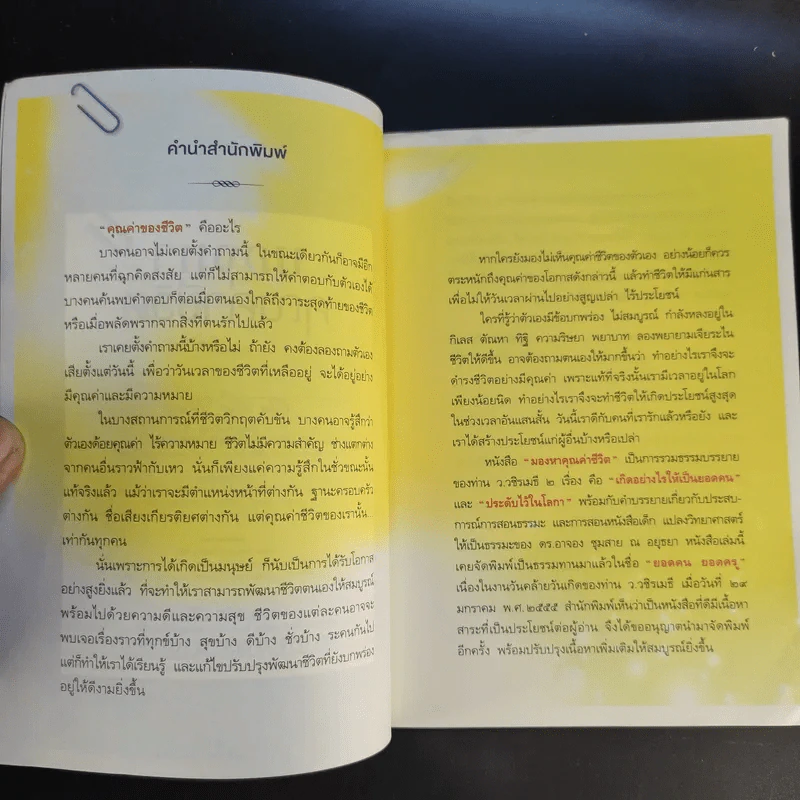 คำนำสำนักพิมพ์
“คุณค่าของชีวิต” คืออะไร
บางคนอาจไม่เคยตั้งคำถามนี้ ในขณะเดียวกันก็อาจมีอีก
หลายคนที่ฉุกคิดสงสัย แต่ก็ไม่สามารถให้คำตอบกับตัวเองได้
บางคนค้นพบคำตอบก็ต่อเมื่อตนเองใกล้ถึงวาระสุดท้ายของชีวิต
หรือเมื่อพลัดพรากจากสิ่งที่ตนรักไปแล้ว
เราเคยตั้งคำถามนี้บ้างหรือไม่ ถ้ายัง คงต้องลองถามตัวเอง
เสียตั้งแต่วันนี้ เพื่อว่าวันเวลาของชีวิตที่เหลืออยู่ จะได้อยู่อย่าง
มีคุณค่าและมีความหมาย
ในบางสถานการณ์ที่ชีวิตวิกฤตคับขัน บางคนอาจรู้สึกว่า
ตัวเองด้อยคุณค่า ไร้ความหมาย ชีวิตไม่มีความสำคัญ ช่างแตกต่าง
จากคนอื่นราวฟ้ากับเหว นั่นก็เพียงแค่ความรู้สึกในชั่วขณะนั้น
แท้จริงแล้ว แม้ว่าเราจะมีตำแหน่งหน้าที่ต่างกัน ฐานะครอบครัว
ต่างกัน ชื่อเสียงเกียรติยศต่างกัน แต่คุณค่าชีวิตของเรานั้น
เท่ากันทุกคน
นั่นเพราะการได้เกิดเป็นมนุษย์ ก็นับเป็นการได้รับโอกาส
อย่างสูงยิ่งแล้ว ที่จะทำให้เราสามารถพัฒนาชีวิตตนเองให้สมบูรณ์
พร้อมไปด้วยความดีและความสุข ชีวิตของแต่ละคนอาจจะ
พบเจอเรื่องราวที่ทุกข์บ้าง สุขบ้าง ดีบ้าง ชั่วบ้าง ระคนกันไป
แต่ก็ทำให้เราได้เรียนรู้ และแก้ไขปรับปรุงพัฒนาชีวิตที่ยังบกพร่อง
อยู่ให้ดีงามยิ่งขึ้น
หากใครยังมองไม่เห็นคุณค่าชีวิตของตัวเอง อย่างน้อยก็ควร
ตระหนักถึงคุณค่าของโอกาสดังกล่าวนี้ แล้วทำชีวิตให้มีแก่นสาร
เพื่อไม่ให้วันเวลาผ่านไปอย่างสูญเปล่า ไร้ประโยชน์
ใครที่รู้ว่าตัวเองมีข้อบกพร่อง ไม่สมบูรณ์ กำลังหลงอยู่ใน
กิเลส ตัณหา ทิฐิ ความริษยา พยาบาท ลองพยายามเจียระไน
ชีวิตให้ดีขึ้น อาจต้องถามตนเองให้มากขึ้นว่า ทำอย่างไรเราจึงจะ
ดำรงชีวิตอย่างมีคุณค่า เพราะแท้ที่จริงนั้นเรามีเวลาอยู่ในโลก
เพียงน้อยนิด ทำอย่างไรเราจึงจะทำชีวิตให้เกิดประโยชน์สูงสุด
ในช่วงเวลาอันแสนสั้น วันนี้เราดีกับคนที่เรารักแล้วหรือยัง และ
เราได้สร้างประโยชน์แก่ผู้อื่นบ้างหรือเปล่า
หนังสือ “มองหาคุณค่าชีวิต” เป็นการรวมธรรมบรรยาย
ของท่าน ว.วชิรเมธี ๒ เรื่อง คือ “เกิดอย่างไรให้เป็นยอดคน”
และ “ประดับไว้ในโลกา” พร้อมกับคำบรรยายเกี่ยวกับประสบ-
การณ์การสอนธรรมะ และการสอนหนังสือเด็ก แปลงวิทยาศาสตร์
ให้เป็นธรรมะของ ดร.อาจอง ชุมสาย ณ อยุธยา หนังสือเล่มนี้
เคยจัดพิมพ์เป็นธรรมทานมาแล้วในชื่อ “ยอดคน ยอดครู”
เนื่องในงานวันคล้ายวันเกิดของท่าน ว.วชิรเมธี เมื่อวันที่ ๒๔
มกราคม พ.ศ.๒๕๕๕ สำนักพิมพ์เห็นว่าเป็นหนังสือที่ดีมีเนื้อหา
สาระที่เป็นประโยชน์ต่อผู้อ่าน จึงได้ขออนุญาตนำมาจัดพิมพ์
อีกครั้ง พร้อมปรับปรุงเนื้อหาเพิ่มเติมให้สมบูรณ์ยิ่งขึ้น